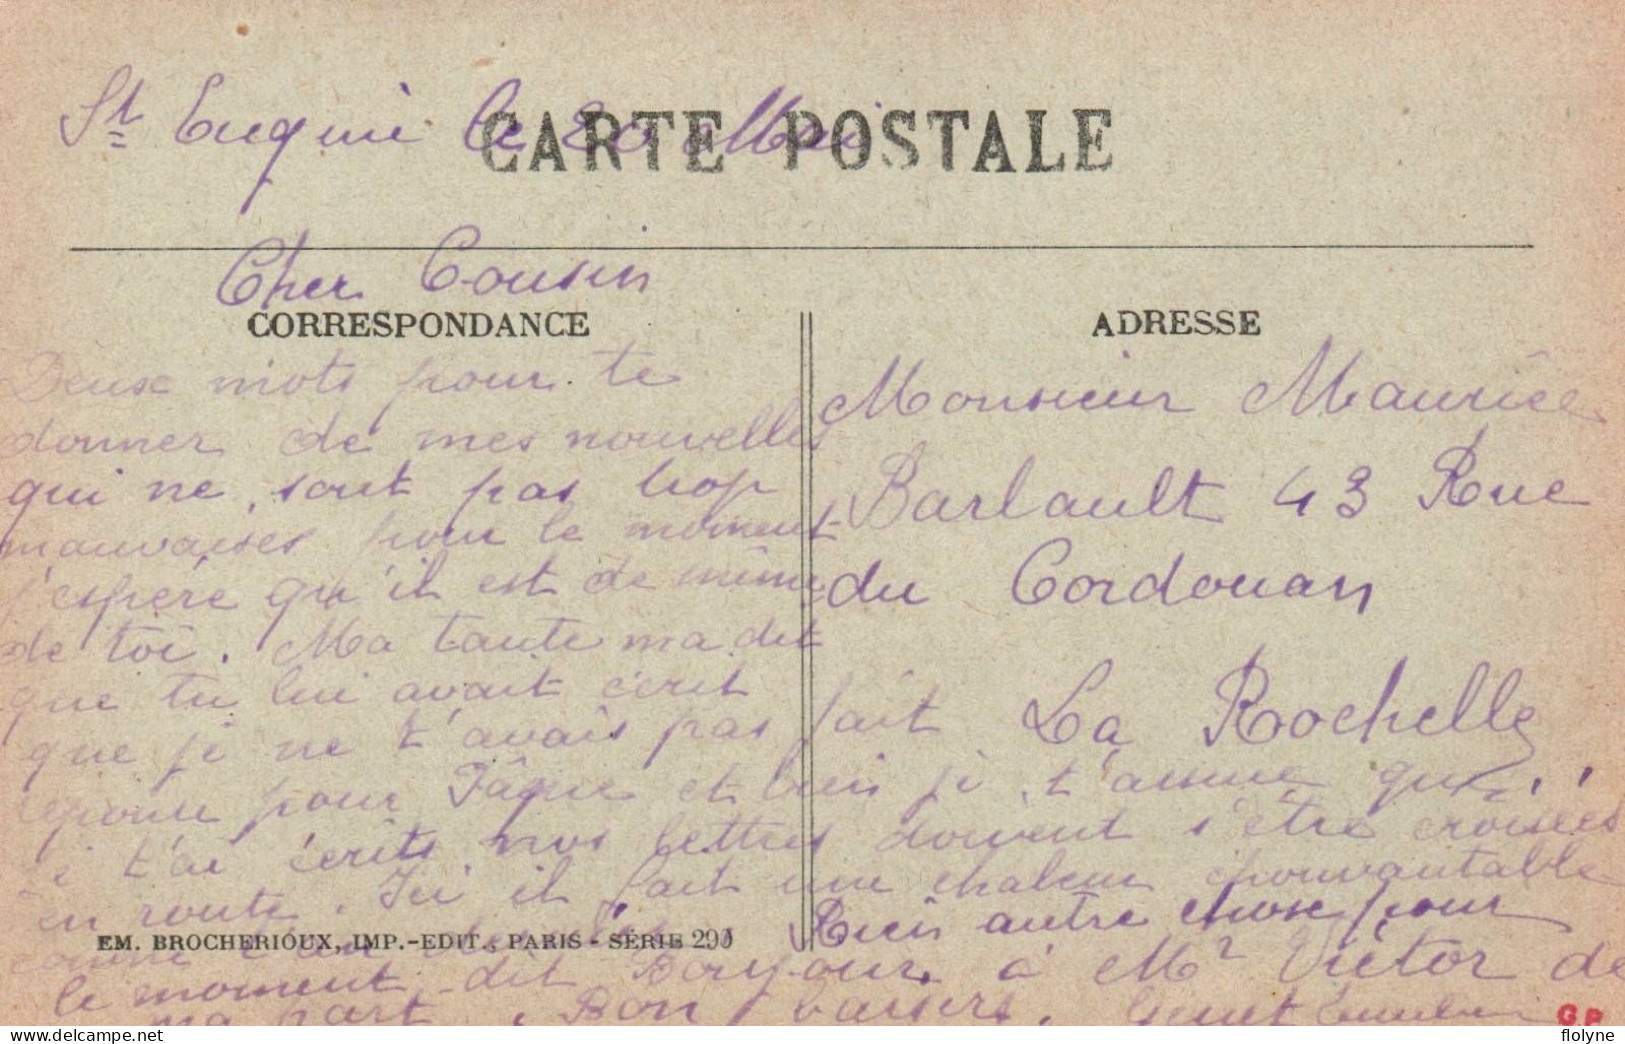 St Eugène le 20 Mai
CARTE POSTALE
Cher Cousin
CORRESPONDANCE
Deux mots pour te
donner de mes nouvelles
qui ne sont pas trop
mauvaises pour le moment
j'espère qu'il est de même
de toi. Ma tante ma dit
que tu lui avait écrit
que je ne t'avais pas fait
reponse pour Pâque et bien je t'assure que
je t'ai écrits nos lettres doivent s'être croisées
en route. Ici il fait une chaleur épouvantable
comme
Rien autre chose pour
le moment dit Bonjour à Mr Victor de
ma part. Bon baisers.
ADRESSE
Monsieur Maurice
Barlault 43 Rue
du Cordouan
La Rochelle
EM. BROCHERIOUX, IMP.-EDIT., PARIS - SÉRIE 291
GP
flolyne